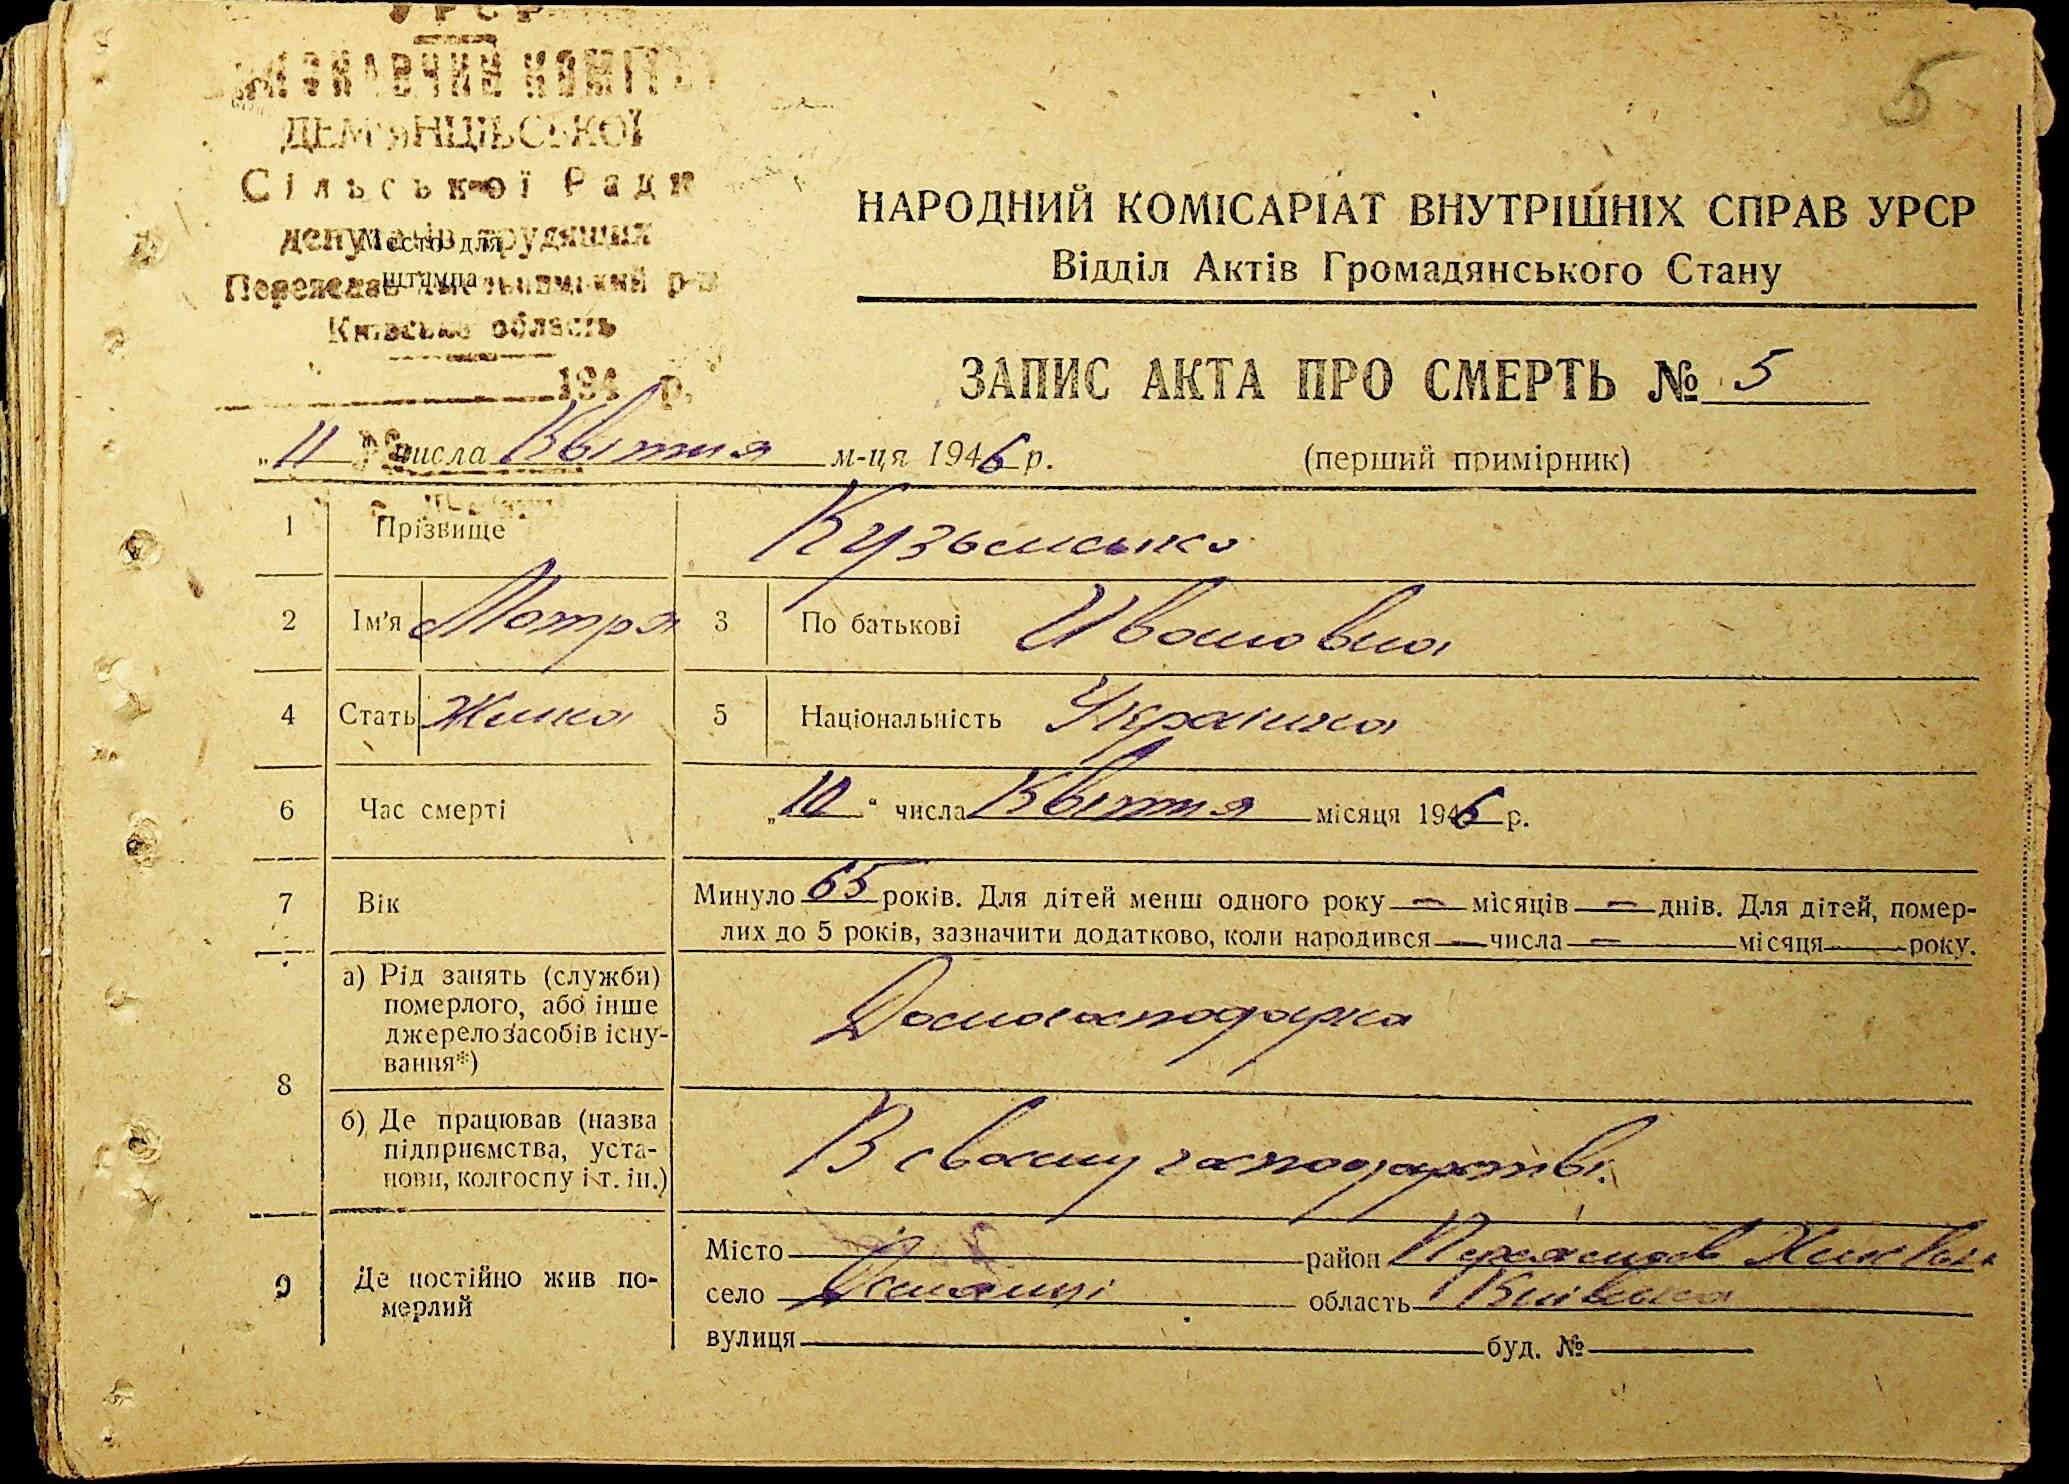 УРСР
ВИКОНАВЧИЙ КОМІТЕТ
ДЕМ'ЯНЦІВСЬКОЇ
Сільської Ради
депутатів трудящих
Место для
штампа
Переяслав-Хмельницький р-н
Київська область
194 р.
5
НАРОДНИЙ КОМІСАРІАТ ВНУТРІШНІХ СПРАВ УРСР
Відділ Актів Громадянського Стану
ЗАПИС АКТА ПРО СМЕРТЬ № 5
„11 числа Квітня м-ця 1946 р. (перший примірник)
1 Прізвище Кузьменко
2 Ім'я Мотря 3 По батькові Ивановна
4 Стать Жінка 5 Національність Українка
6 Час смерті „10“ числа Квітня місяця 1946 р.
7 Вік Минуло 65 років. Для дітей менш одного року — місяців — днів. Для дітей, помер-
лих до 5 років, зазначити додатково, коли народився — числа — місяця року.
8 а) Рід занять (служби)
померлого, або інше
джерело засобів існу-
вання*) Домогосподарка
б) Де працював (назва
підприємства, уста-
нови, колгоспу і т. ін.) В своєму господарстві.
9 Де постійно жив по-
мерлий
Місто район Переяслав Хмел
село область Київська
вулиця буд. №